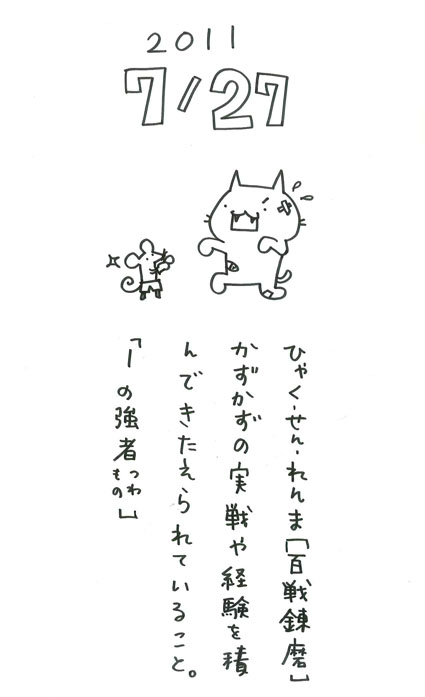 2011
7/27
ひゃく-せん-れんま「百戦錬磨」
かずかずの実戦や経験を積
んできたえられていること。
「―の強者つわもの」